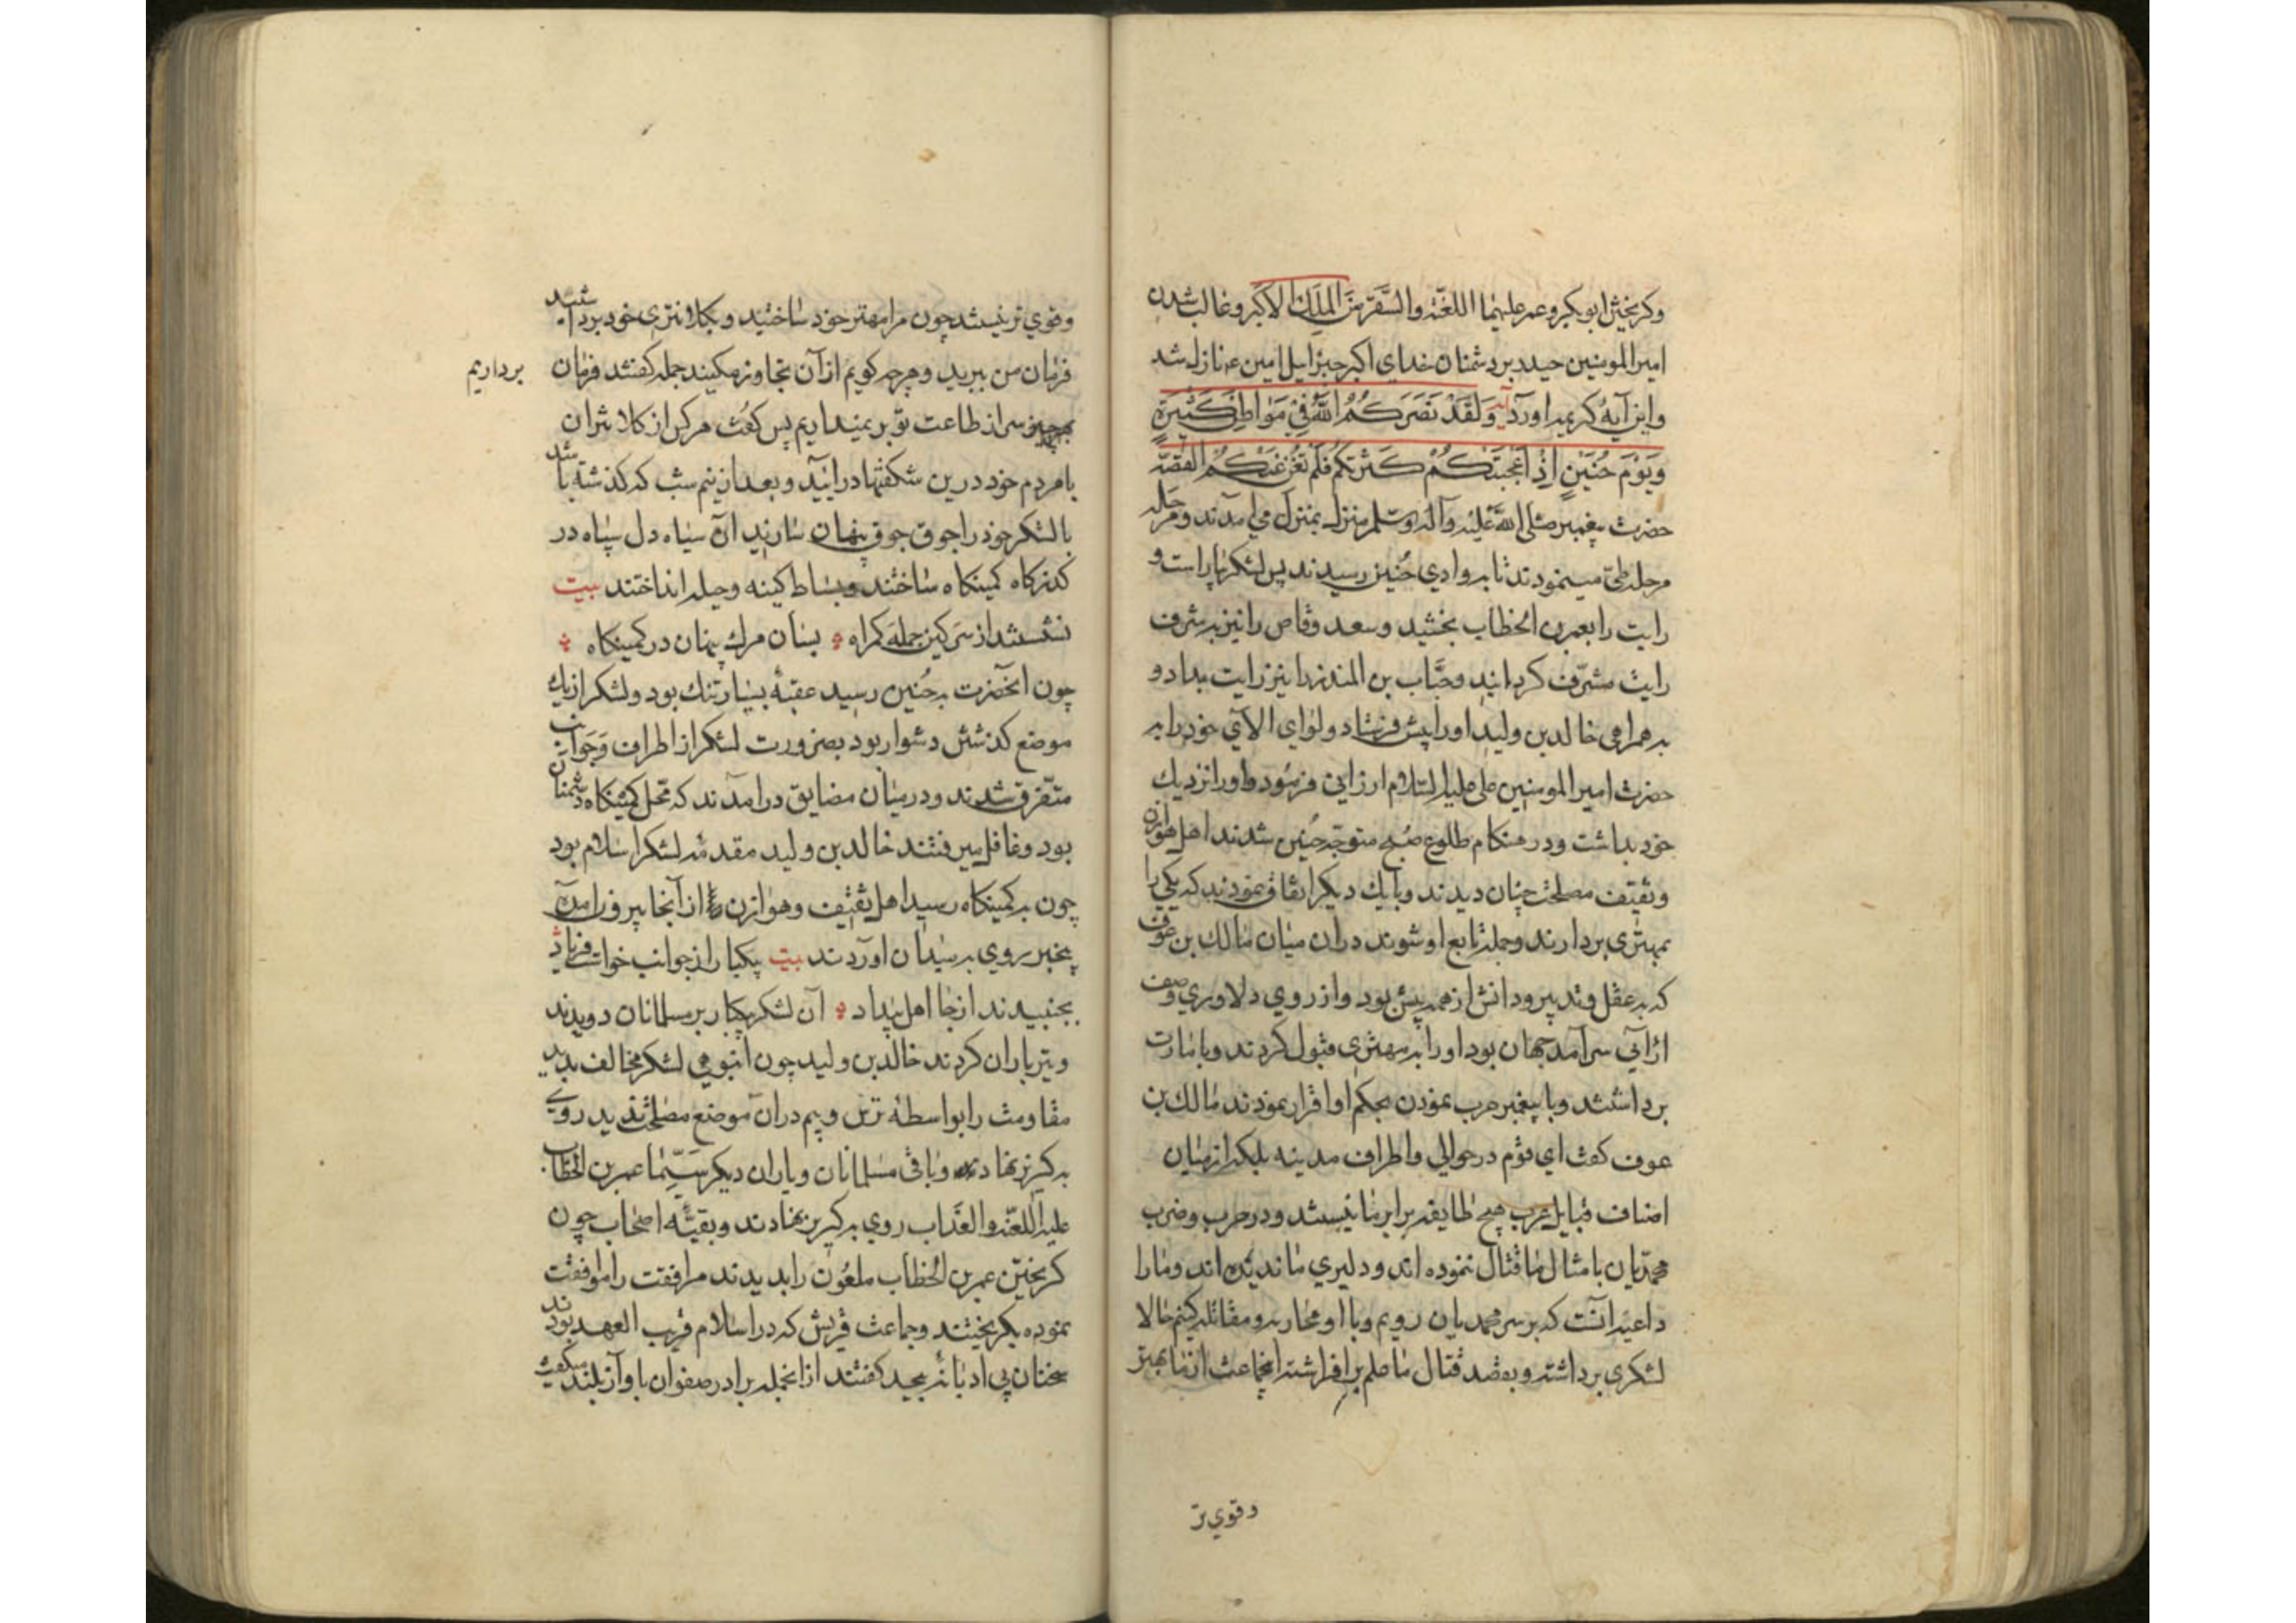 وکریختن ابوبکر و عمر علیهما اللعنه والسقر من الملک الاکبر و غالب شدن
امیرالمومنین حیدر بر دشمنان خدای اکبر جبرایل امین ع نازل شد
واین آیهٔ کریمه اورد آیه وَلَقَدْ نَصَرَکُمُ اللَّهُ فِیْ مَوَاطِنَ کَثِیْرَةٍ
وَیَوْمَ حُنَیْنٍ اِذْ اَعْجَبَتْکُمْ کَثْرَتُکُمْ فَلَمْ تُغْنِ عَنْکُمْ القصّه
حضرت پیغمبر صلی الله علیه وآله وسلم منزل بمنزل می آمدند ومرحله
مرحله طی مینمودند تا به وادی حُنین رسیدند پس لشکر بیاراست و
رایت را بعمر بن الخطاب بخشید وسعد وقاص را نیز به شرف
رایت مشرّف کردانید وحبَّاب بن المنذر را نیز رایت بداد و
به همراهی خالد بن ولید اورا پیش فرستاد ولوای الآی خود را به
حضرت امیرالمومنین علی علیه السلام ارزانی فرمود واورا نزدیک
خود بداشت ودر هنکام طلوع صبح متوجه حُنین شدند اهل هوازن
وثقیف مصلحت چنان دیدند وبا یک دیکر اتفاق نمودند که یکی را
بمهتری بردارند وجمله تابع او شوند دران میان مالک بن عوف
که به عقل وتدبیر ودانش از همه پیش بود واز روی دلاوری وصف
ارائی سرآمد جهان بود اورا به مهتری قبول کردند وبامارت
برداشتند وبا پیغمبر حرب نمودن بحکم او اقرار نمودند مالک بن
عوف کفت ای قوم در حوالی واطراف مدینه بلکه از میان
اصناف قبایل عرب هیچ طایفه برابر ما نیستند ودر حرب وضرب
محمدیان با مثال ما قتال ننموده اند ودلیری ما ندیده اند وما را
داعیه آنست که بر سر محمدیان رویم وبا او محاربه ومقاتله کنیم حالا
لشکری برداشته وبقصد قتال ما علم برافراشته انجماعت از ما بهتر
وقوی تر
وقوی تر نیستند چون مرا مهتر خود ساختید وبکلانتری خود برداشتید
فرمان من ببرید وهرچه کویم از آن تجاوز مکنید جمله کفتند فرمان برداریم
سر از طاعت تو بر نمیداریم پس کفت هر کس از کلانتران
با مردم خود درین شکفتها درآیید وبعد از نیم شب که کذشته باشد
با لشکر خود را جوق جوق پنهان سازید آن سیاه دل سپاه در
کذرکاه کمینکاه ساختند وبساط کینه وحیله انداختند بیت
نشستند از سر کین جمله کمراه بسان مرک پنهان در کمینکاه
چون انحضرت به حُنین رسید عقبهٔ بسیار تنک بود ولشکر از یک
موضع کذشتن دشوار بود بضرورت لشکر از اطراف وَجَوانب
متفرق شدند ودر میان مضایق درامدند که محل کمینکاه دشمنان
بود وغافل میرفتند خالد بن ولید مقدمه لشکر اسلام بود
چون به کمینکاه رسید اهل ثقیف وهوازن از آنجا بیرون آمده
بیخبر روی به میدان اوردند بیت بیکبار از جوانب خواست فریاد
بجنبیدند از جا اهل بیداد آن لشکر بیکبار بر مسلمانان دویدند
وتیر باران کردند خالد بن ولید چون انبوهی لشکر مخالف بدید
مقاومت را بواسطه ترس وبیم دران موضع مصلحت ندید روی
به کریز نهاد وباقی مسلمانان ویاران دیکر سیّما عمر بن الخطاب
علیه اللعنه والعذاب روی به کریز نهادند وبقیّه اصحاب چون
کریختن عمر بن الخطاب ملعُون را بدیدند مرافقت را موافقت
نموده بکریختند وجماعت قریش که در اسلام قریب العهد بودند
سخنان بی ادبانه بیحد کفتند از انجمله برادر صفوان باواز بلند میکفت